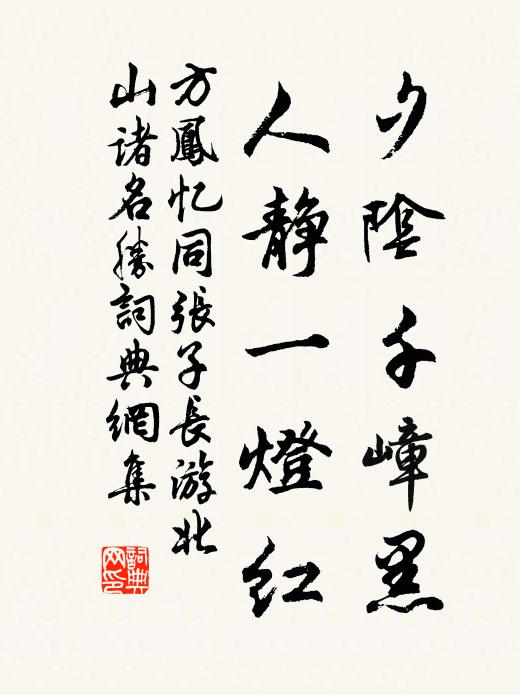 夕陰千嶂黑
人靜一燈红
方鳳忆同張子長游北
山诸名勝詞典網集
詞典
网印